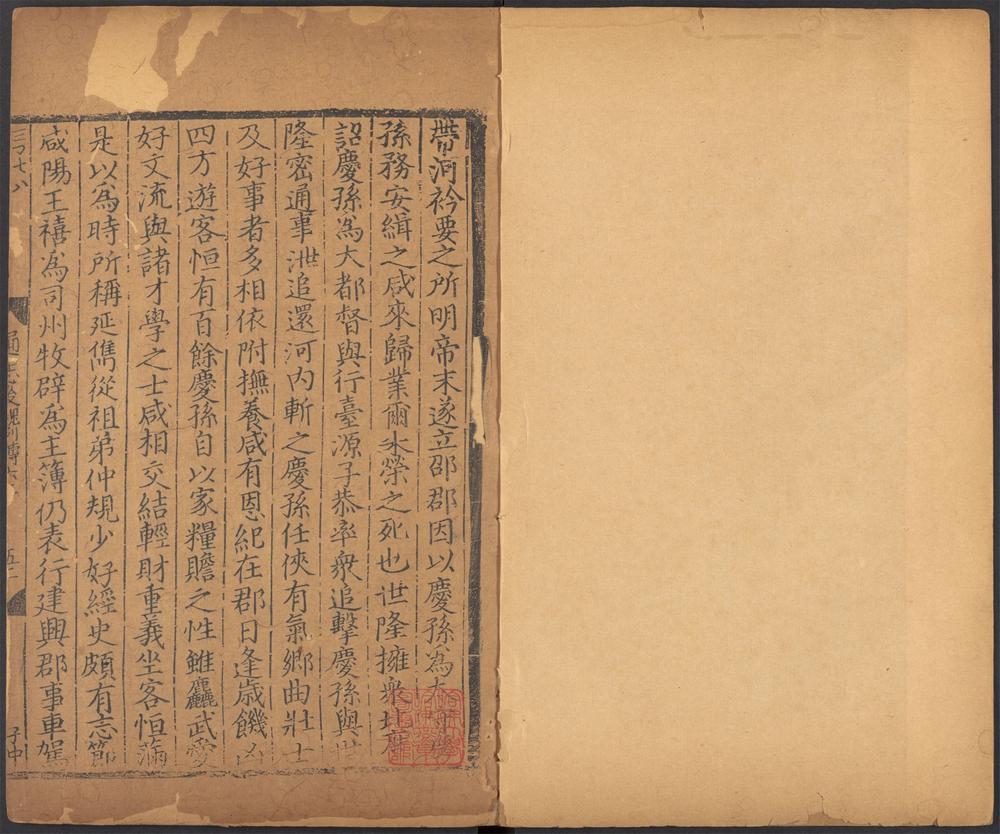 帶河衿要之所明帝末遂立邵郡因以慶孫為太守慶
孫務安緝之咸來歸業爾朱榮之死也世隆擁衆北度
詔慶孫為大都督與行臺源子恭率衆追擊慶孫與世
隆密通事泄追還河內斬之慶孫任俠有氣鄉曲壯士
及好事者多相依附撫養咸有恩紀在郡日逢歲饑凶
四方遊客恒有百餘慶孫自以家糧贍之性雖麤武愛
好文流與諸才學之士咸相交結輕財重義坐客恒滿
是以為時所稱延儁從祖弟仲規少好經史頗有志節
咸陽王禧為司州牧辟為主簿仍表行建興郡事車駕